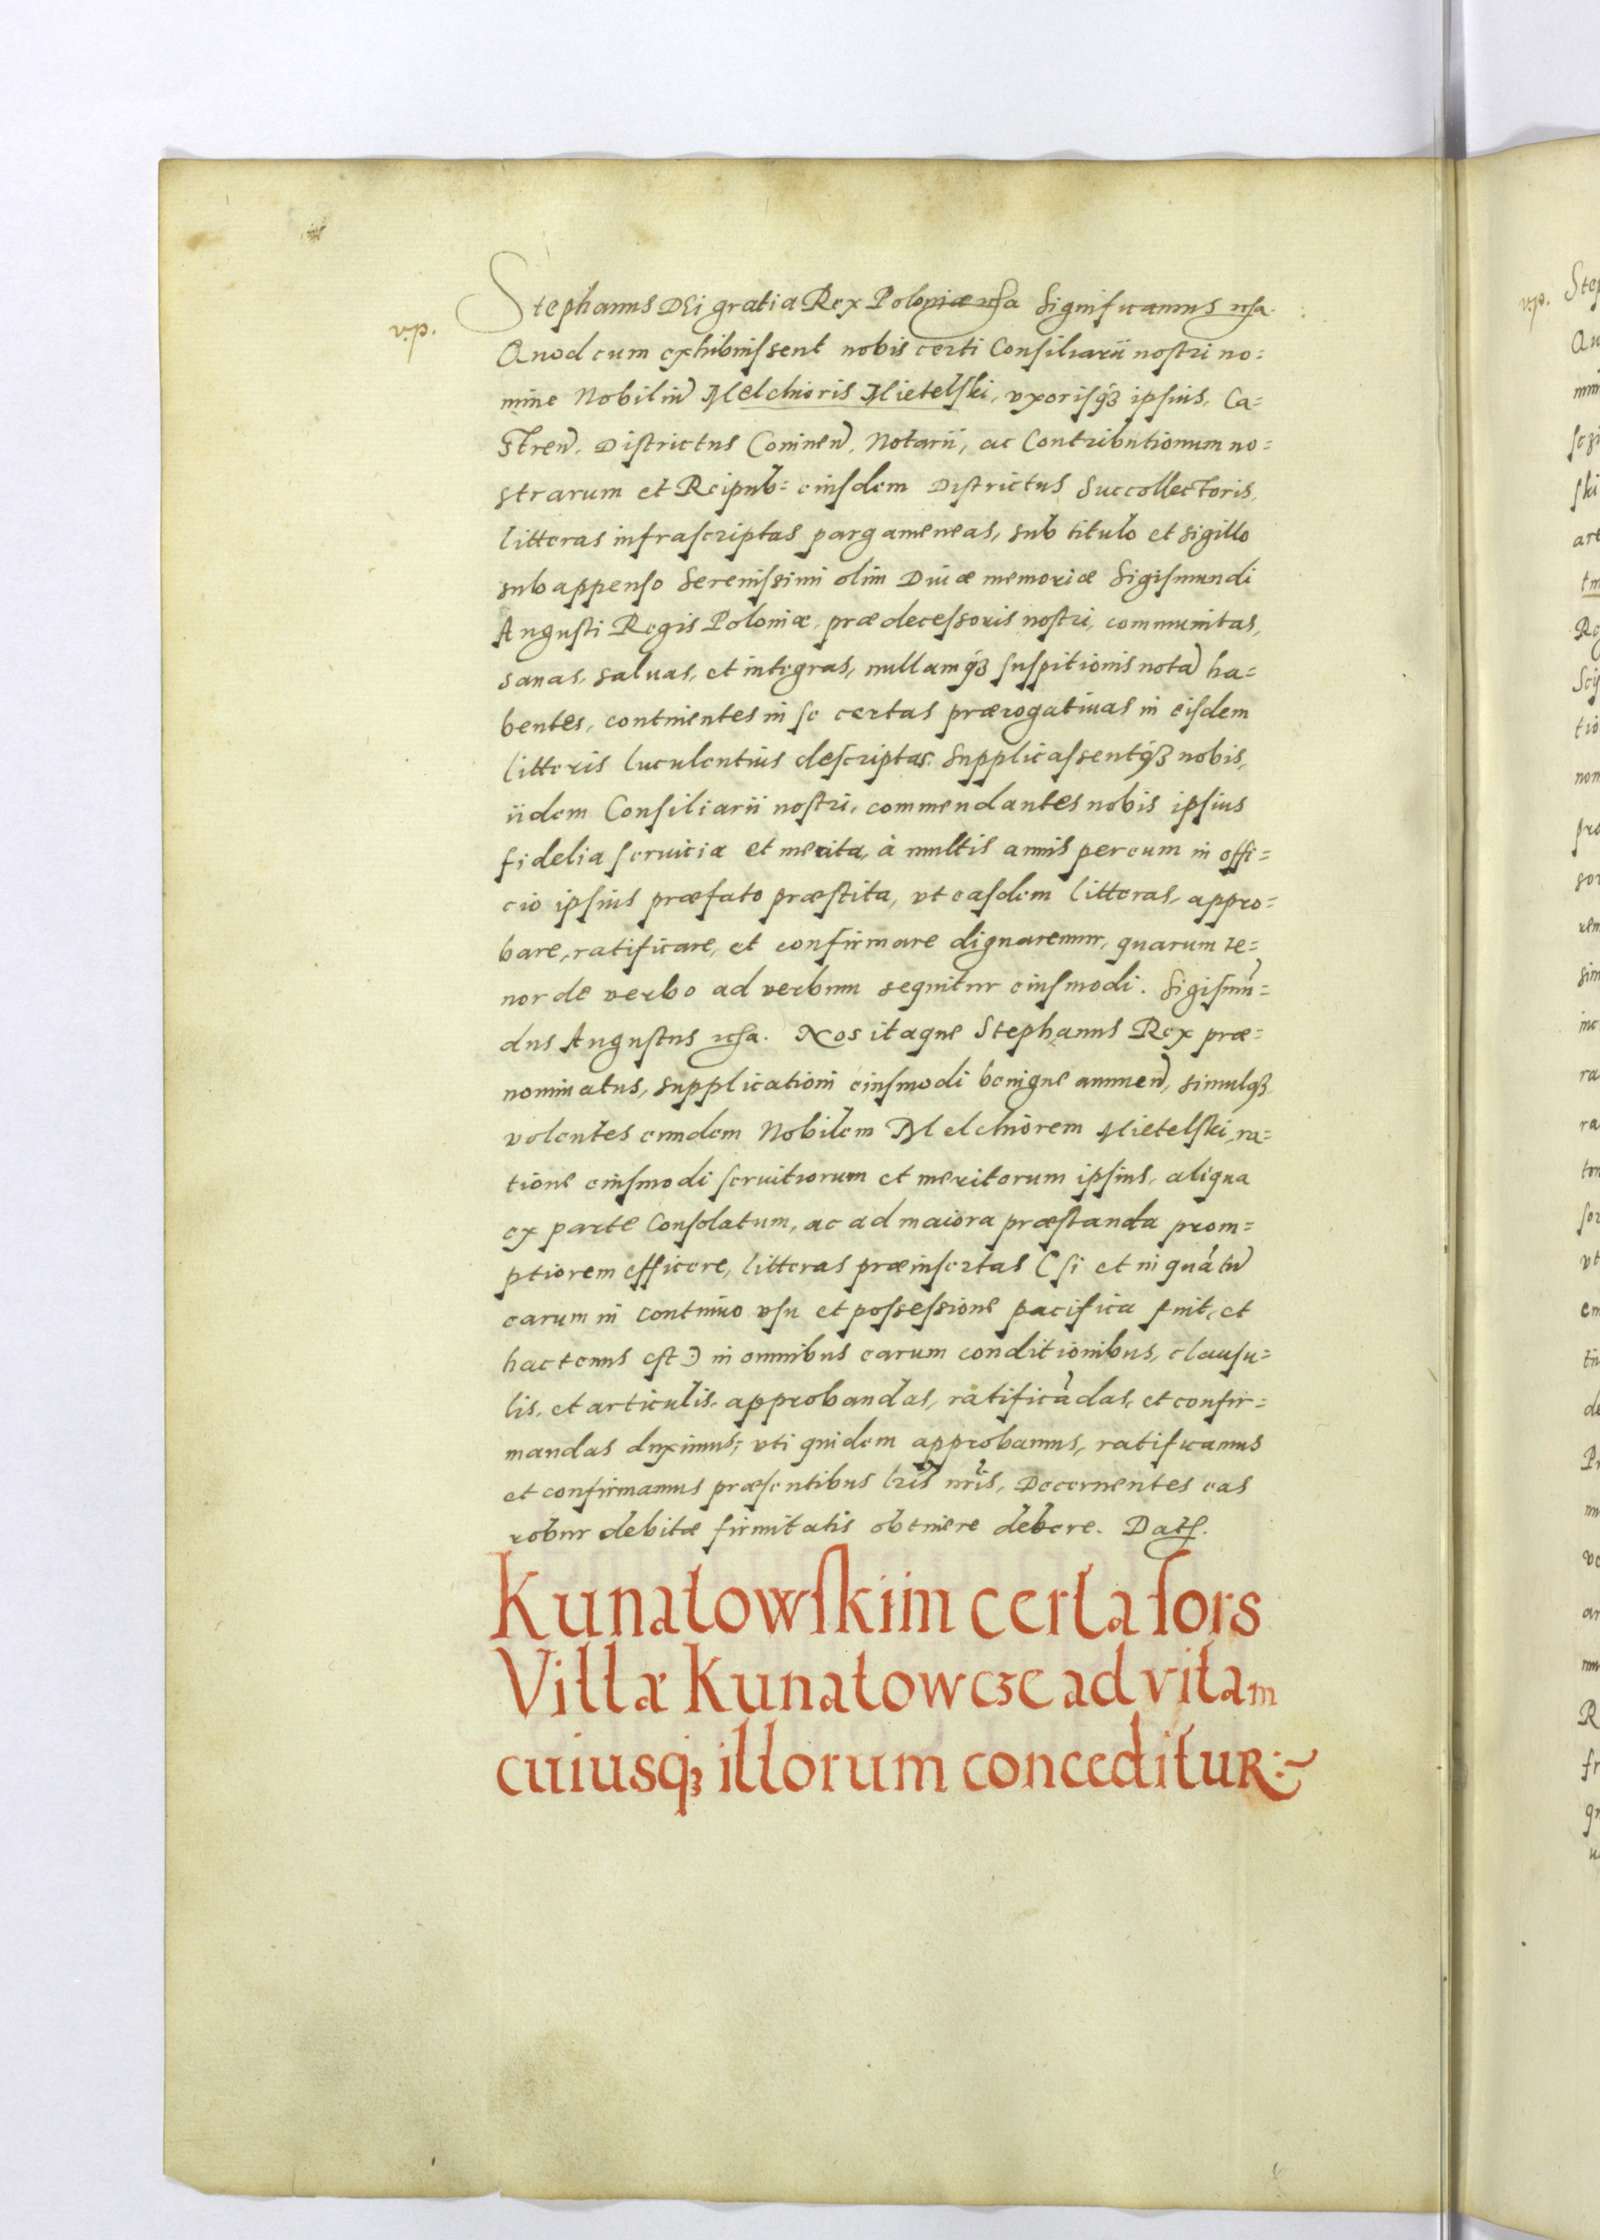 v.p.
Stephanus Dei gratia Rex Poloniæ rcsa Significamus rcsa.
Quod cum exhibuissent nobis certi Consiliarii nostri no=
mine Nobiliũ Melchioris Mietelski, vxorisq3 ipsius, Ca=
streñ. Districtus Coninen̄. Notarii, ac Contributionum no=
strarum et Reipub= eiusdem Districtus Succollectoris,
litteras infrascriptas pargameneas, sub titulo et sigillo
subappenso Serenissimi olim Diuæ memoriæ Sigismundi
Augusti Regis Poloniæ, prædecessoris nostri, communitas,
sanas, saluas, et integras, nullamq3 suspitionis notã ha=
bentes, continentes in se certas prærogatiuas in eisdem
litteris luculentius descriptas. Supplicassentq3 nobis,
iidem Consiliarii nostri, commendantes nobis ipsius
fidelia seruicia et merita, à multis annis per eum in offi=
cio ipsius præfato præstita, vt easdem litteras, appro=
bare, ratificare, et confirmare dignaremur, quarum te=
nor de verbo ad verbum sequitur eiusmodi. Sigismũ=
dus Augustus rcsa. Nos itaque Stephanus Rex præ=
nominatus, supplicationi eiusmodi benigne annuen̄, simulq3
volentes eundem Nobilem Melchiorem Mietelski, ra=
tione eiusmodi seruitiorum et meritorum ipsius, aliqua
ex parte Consolatum, ac ad maiora præstanda prom=
ptiorem efficere, litteras præinsertas (si et in quãtũ
earum in continuo vsu et possessione pacifica fuit, et
hactenus est) in omnibus earum conditionibus, clausu=
lis, et articulis, approbandas, ratificãdas, et confir=
mandas duximus; vti quidem approbamus, ratificamus
et confirmamus præsentibus lris nris, Decernentes eas
robur debitæ firmitatis obtinere debere. Dat̃.
Kunatowskim certa sors
Villæ Kunatowcze ad vitam
cuiusq3 illorum conceditur:~